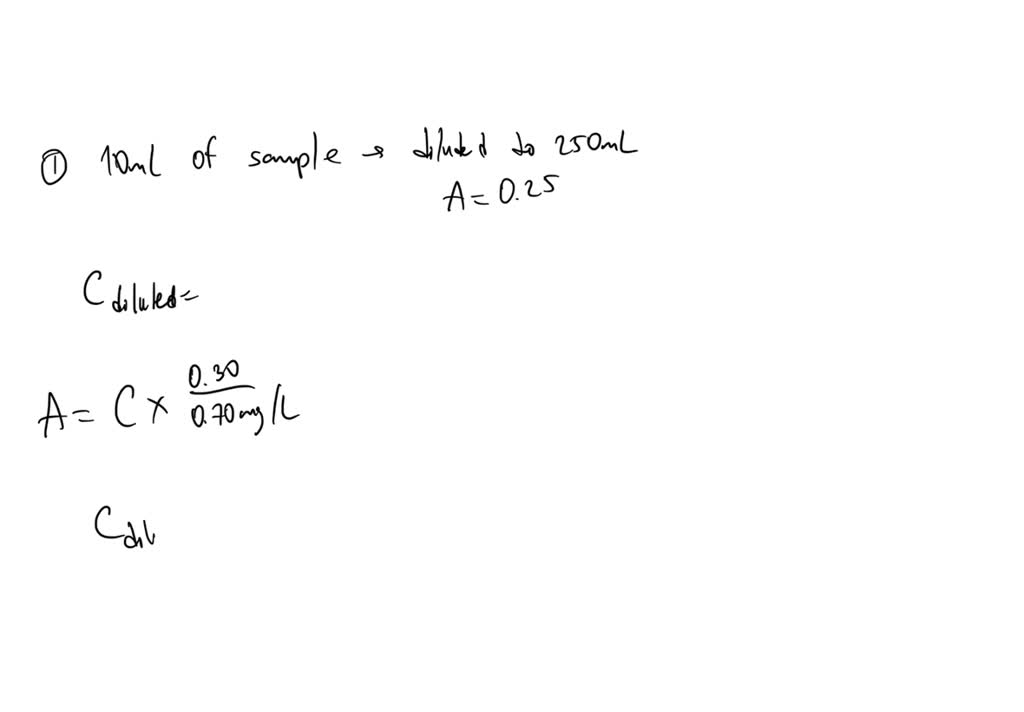 ① 10ml of sample → diluted to 250mL
A = 0.25
C diluted =
A = C × 0.30 / 0.70 mg/L
C dil